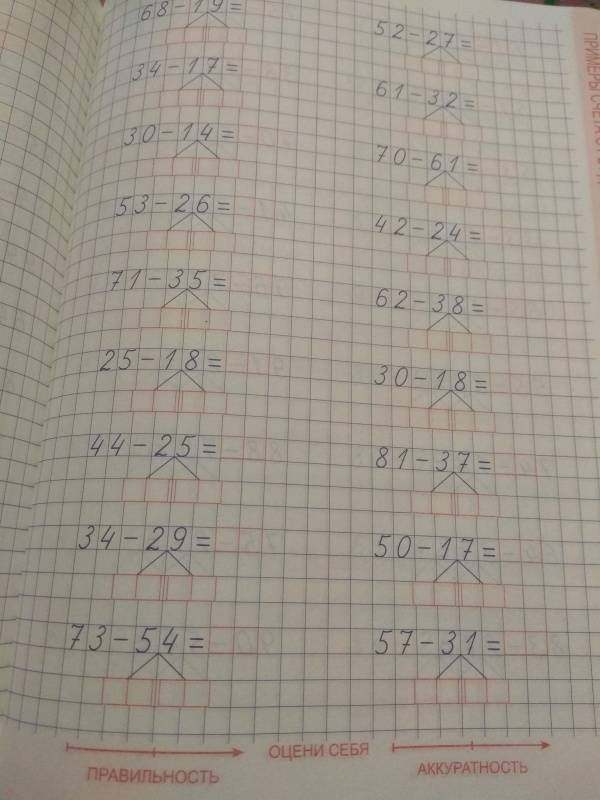 68-19=
34-17=
30-14=
53-26=
71-35=
25-18=
44-25=
34-29=
73-54=
52-27=
61-32=
70-61=
42-24=
62-38=
30-18=
81-37=
50-17=
57-31=
ПРИМЕРЫ
ПРАВИЛЬНОСТЬ
ОЦЕНИ СЕБЯ
АККУРАТНОСТЬ